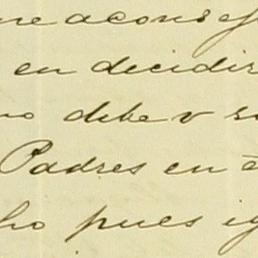 me aconsej
en decidir
no debe v s
Padres en é
ho pues ig